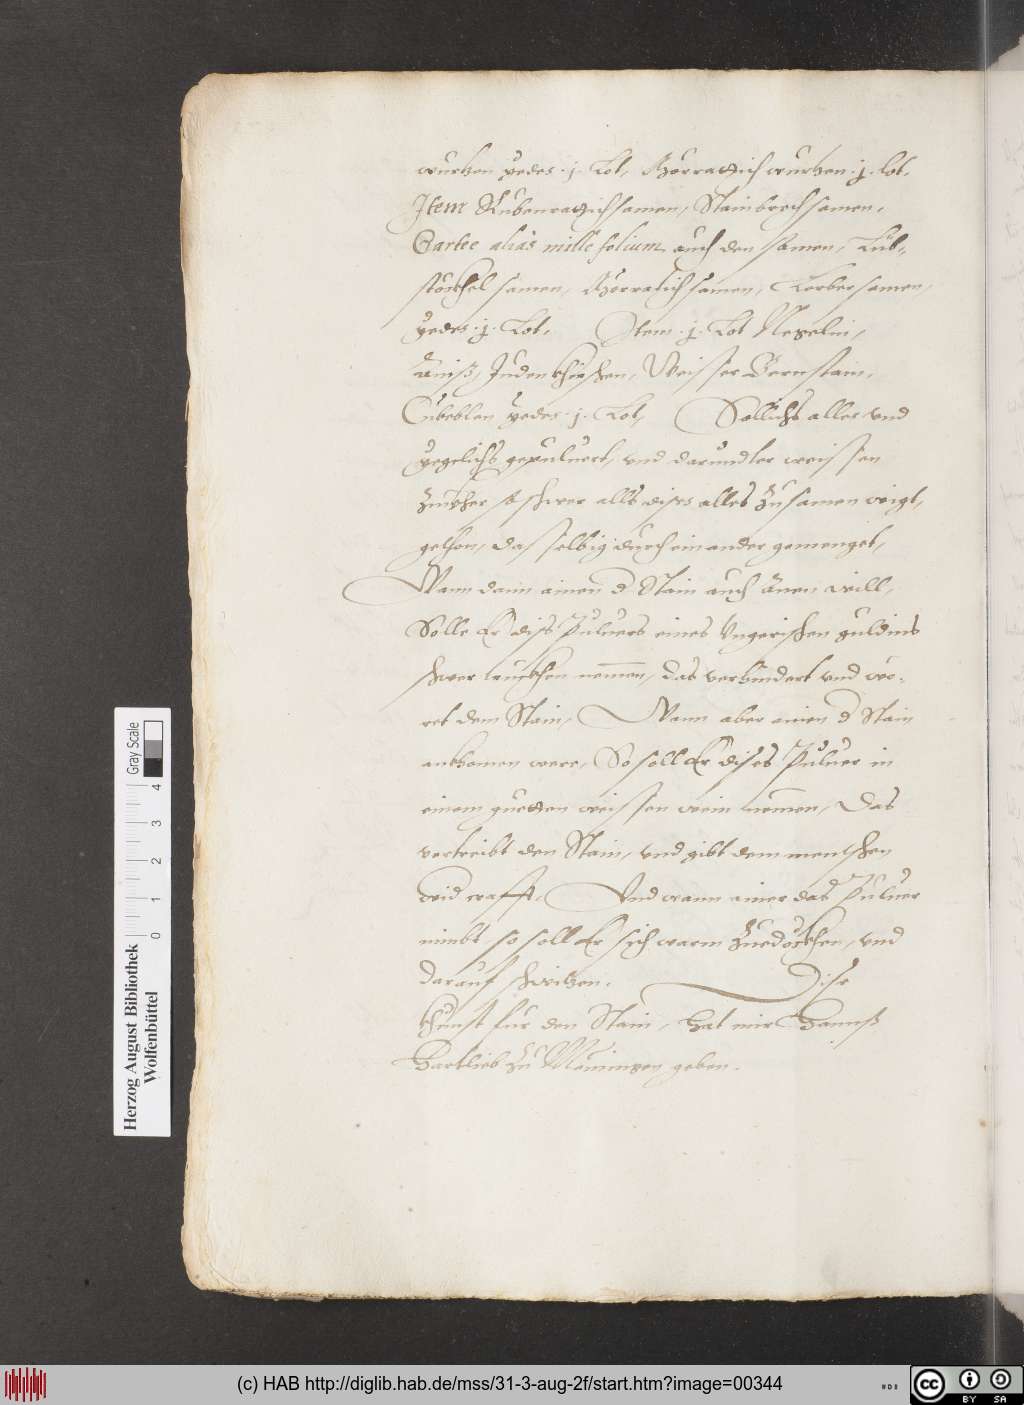 wurtzen yedes . j . Lot, Merrattich wurtzen . j . lot.
Item Rubenratzich samen, Stainbrech samen,
Garbe alias mille folium auch den samen, Lub-
stöckhel samen, Merratich samen, Lorber samen,
yedes . j . Lot, Item . j . Lot Negelin,
äniß, Judenkhirschen, Weisser Bernstain,
Cubeblen yedes . j . Lot, Sollichs alles vnd
yegelichs gepuluert, vnd darundter weissen
Zuckher so schwer alls dises alles Zusamen wigt,
gethon, das selbig durch ein ander gemenget,
Wann dann ainen d Stain auch änen will,
Solle Er diss Puluers eines Vngerischen guldins
schwer truckhen nemen, das verhindert vnd we-
ret dem Stain, Wann aber ainen d Stain
ankhomen were, So soll Er dises Puluer in
einem guetten weissen wein nemen, Das
vertreibt den Stain, vnd gibt dem menschen
wid crafft, Vnd wann ainer das Puluer
nimbt so soll Er sich warm Zuedeckhen, vnd
darauf schwitzen. Dise
khunst fur den Stain, hat mir Hannß
Hartlieb zu Meiningen geben.
Herzog August Bibliothek
Wolfenbüttel
0 1 2 3 4
Gray Scale
(c) HAB http://diglib.hab.de/mss/31-3-aug-2f/start.htm?image=00344
cc BY SA